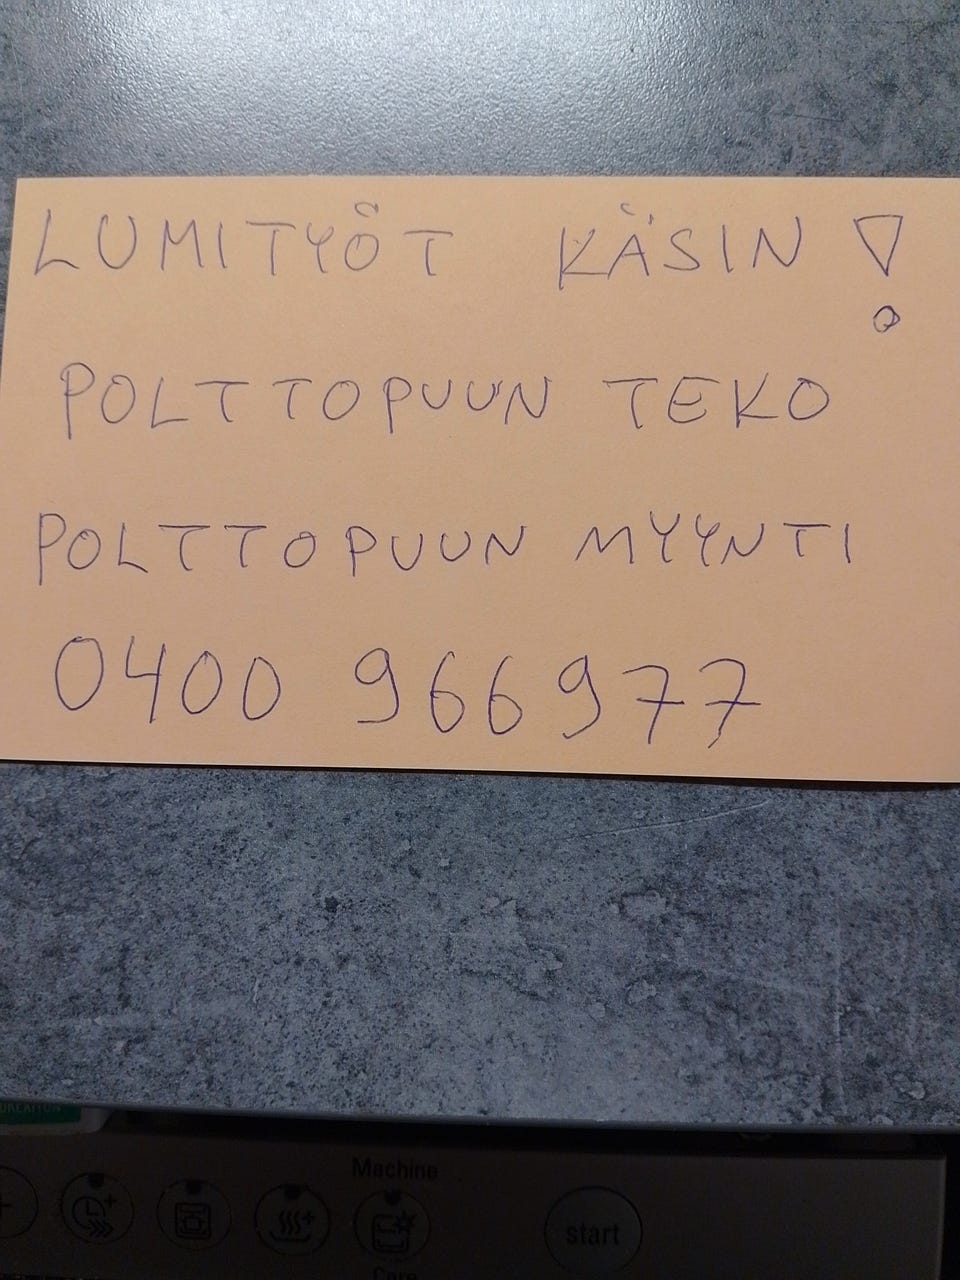 LUMITYÖT KÄSIN!
POLTTOPUUN TEKO
POLTTOPUUN MYYNTI
0400 966977
Machine
start
Care